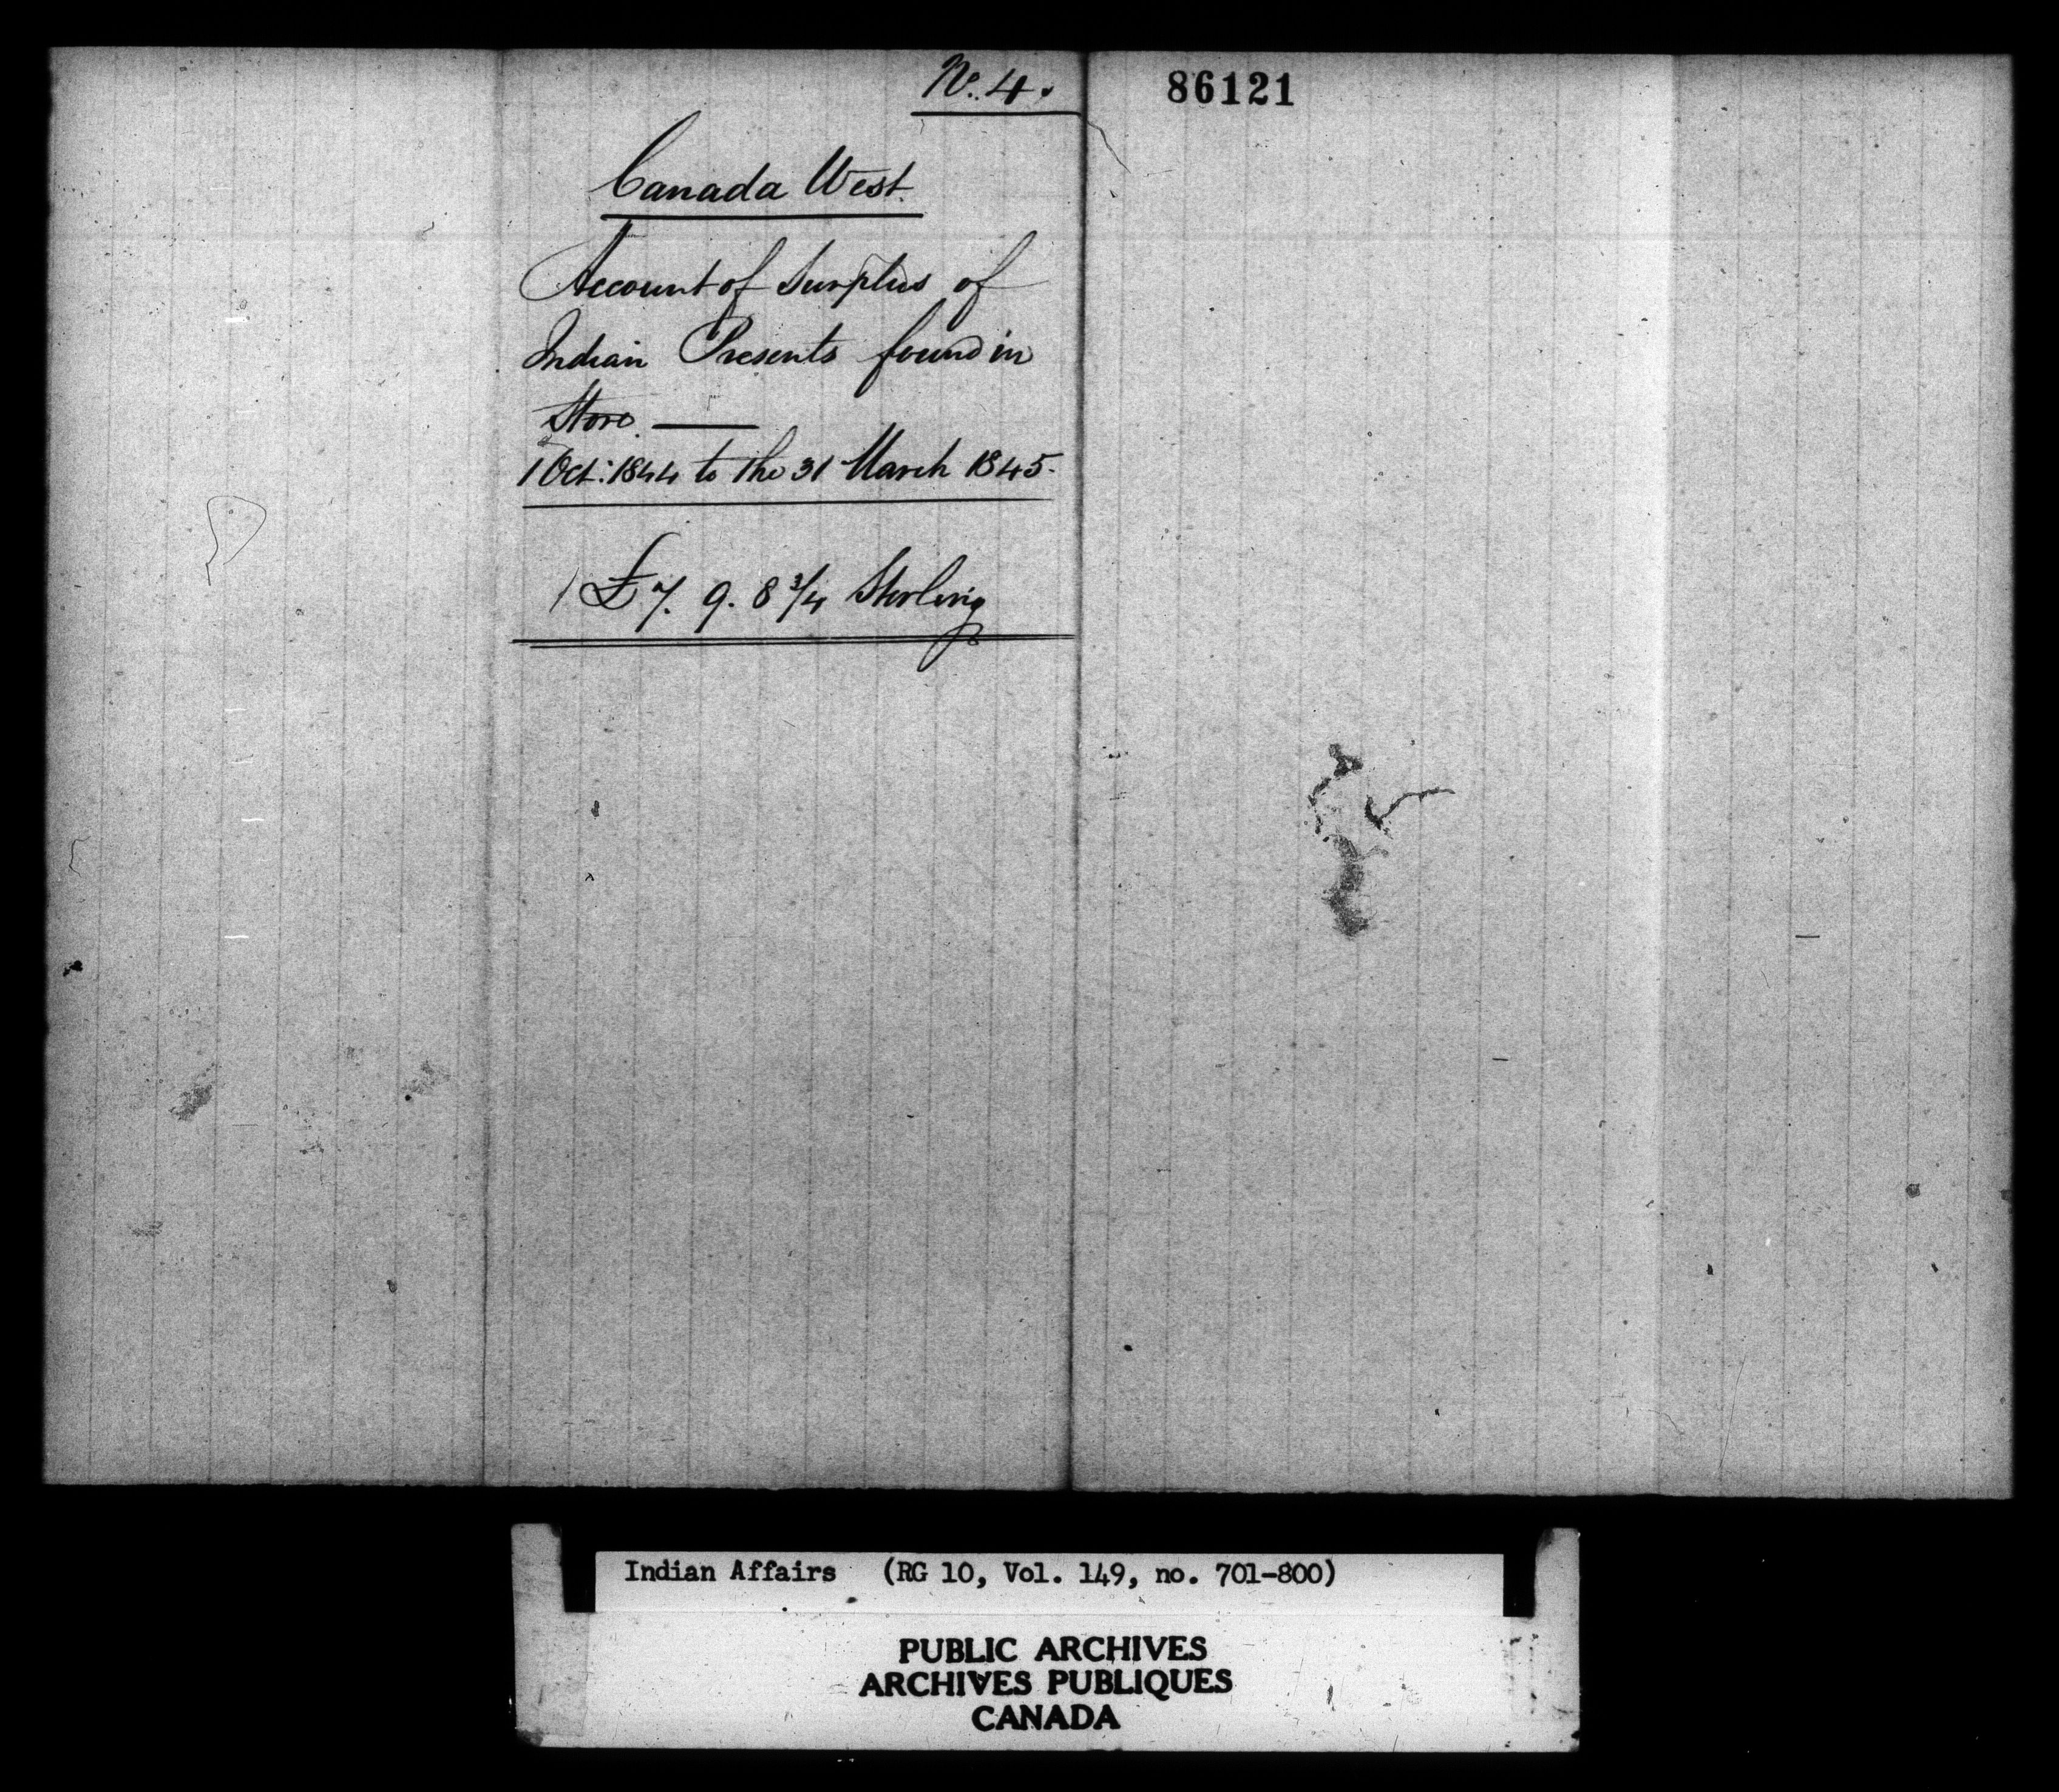 No. 4.
86121
Canada West.
Account of Surplus of
Indian Presents found in
Store. —
1 Oct: 1844 to the 31 March 1845.
£7. 9. 8 3/4 Sterling
Indian Affairs (RG 10, Vol. 149, no. 701-800)
PUBLIC ARCHIVES
ARCHIVES PUBLIQUES
CANADA